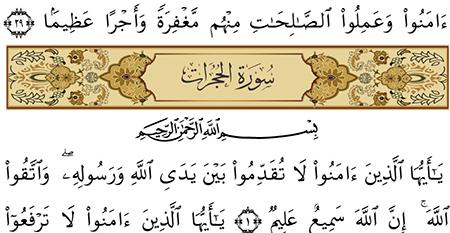 ءَامَنُوا۟ وَعَمِلُوا۟ ٱلصَّـٰلِحَـٰتِ مِنْهُم مَّغْفِرَةً وَأَجْرًا عَظِيمًۢا ﴿٢٩﴾
سُورَةُ الحُجُرَاتِ
بِسْمِ ٱللَّهِ ٱلرَّحْمَـٰنِ ٱلرَّحِيمِ
يَـٰٓأَيُّهَا ٱلَّذِينَ ءَامَنُوا۟ لَا تُقَدِّمُوا۟ بَيْنَ يَدَىِ ٱللَّهِ وَرَسُولِهِۦ ۖ وَٱتَّقُوا۟
ٱللَّهَ ۚ إِنَّ ٱللَّهَ سَمِيعٌ عَلِيمٌ ﴿١﴾ يَـٰٓأَيُّهَا ٱلَّذِينَ ءَامَنُوا۟ لَا تَرْفَعُوٓا۟